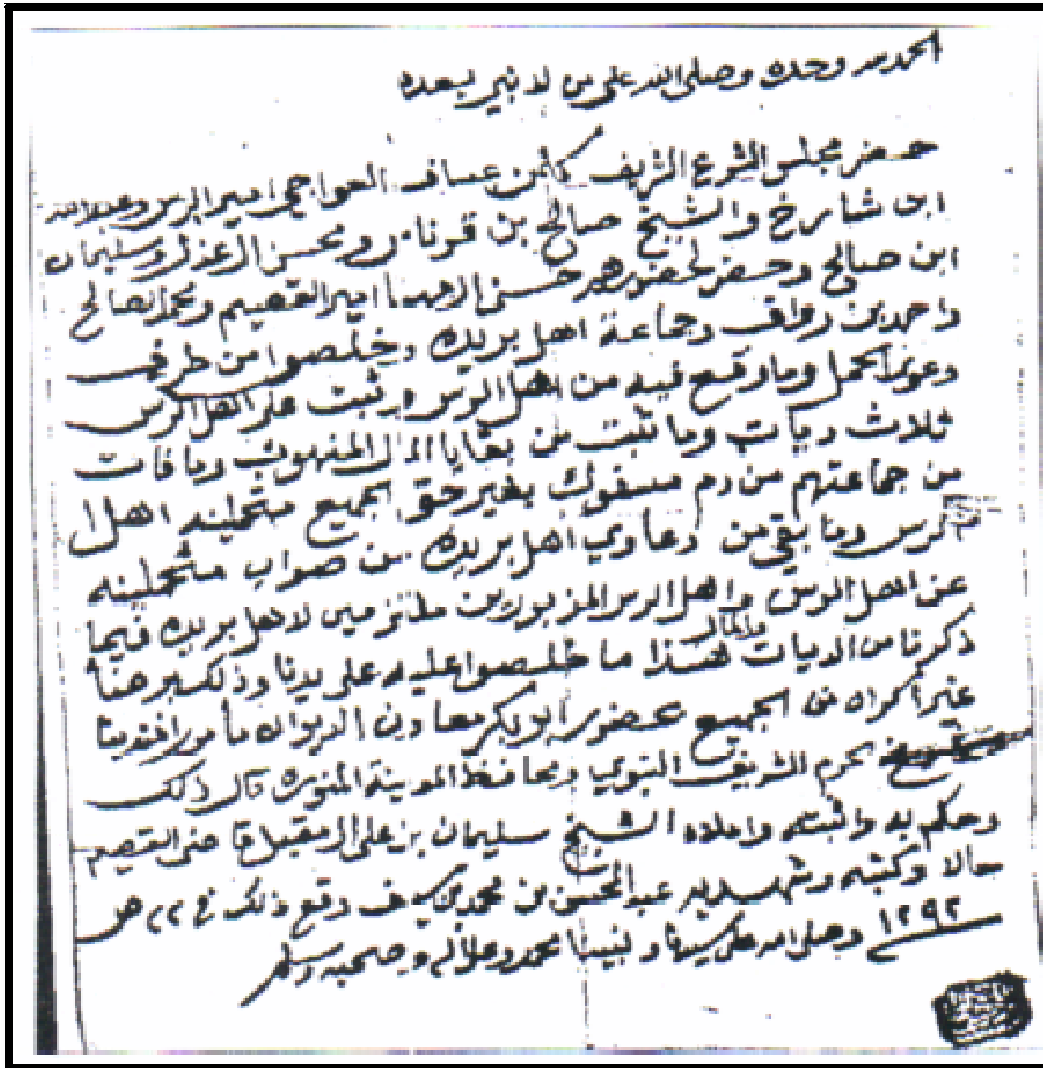 الحمد لله وحده وصلى الله على من لا نبي بعده
حضر مجلس الشرع الشريف عساف الحواجي امير الرس وعبدالله
ابن شارخ والشيخ صالح بن قرناس ومحسن ال عذل وسليمان
ابن صالح وحضر لحضورهم حسن ال مهنا امير القصيم ومحمد الصالح
واحمد بن رواف وجماعة اهل بريده وخلصوا من طرف
دعوى الحمل وما وقع فيه من اهل الرس وثبت على اهل الرس
ثلاث ديات وما ثبت من بقايا المال المنهوب وما فات
من جماعتهم من دم مسفوك بغير حق الجميع متحملينه اهل ا
لرس وما بقي من دعاوي اهل بريده من صواب متحملينه
عن اهل الرس واهل الرس المزبورين ملتزمين لاهل بريده فيما
ذكرنا من الديات والمال هذا ما خلصوا عليه على يدنا وذلك برضا
غير اكراه من الجميع بحضور ابو بكر معاون الديوان مأمور افندينا
شيخ حرم الشريف النبوي ومحافظ المدينة المنوره قال ذلك
وحكم به واثبته واملاه الشيخ سليمان بن علي ال مقبل قاضي القصيم
حالا وكتبه وشهد به عبدالمحسن بن محمد بن سيف وقع ذلك في ٢٢ ص
١٢٩٢ وصلى الله على سيدنا ونبينا محمد وعلى آله وصحبه وسلم